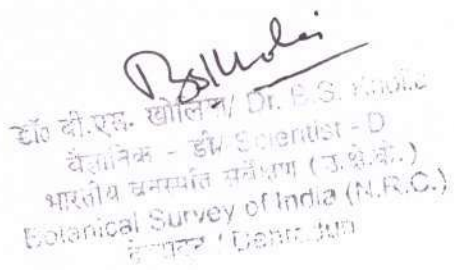 BSKholia
डॉ० बी.एस. खोलिया/ Dr. B.S. Kholia
वैज्ञानिक - डी/ Scientist - D
भारतीय वनस्पति सर्वेक्षण (उ.क्षे.के.)
Botanical Survey of India (N.R.C.)
देहरादून / Dehradun